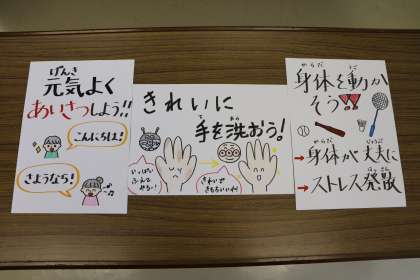 げんき
元気よく
あいさつしよう!!
こんにちは!
さようなら!
きれいに
て あら
手を洗おう!
いっぱい
ふえて
やろー!
きれいで
きもちいいわ!
からだ うご
身体を動か
そう!!
からだ じょうぶ
→身体が丈夫に
はっさん
→ストレス発散